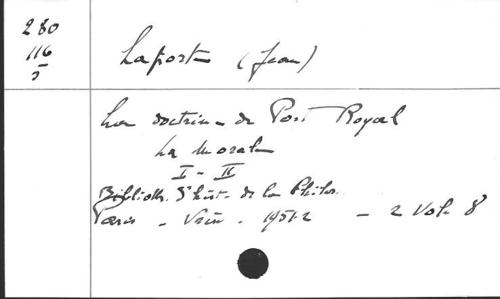 280
116
5
Laporte (Jean)
La doctrine de Port Royal
La Morale
I - II
Biblioth. d'hist. de la Philos.
Paris - Vrin - 1951-2 - 2 Vol. 8